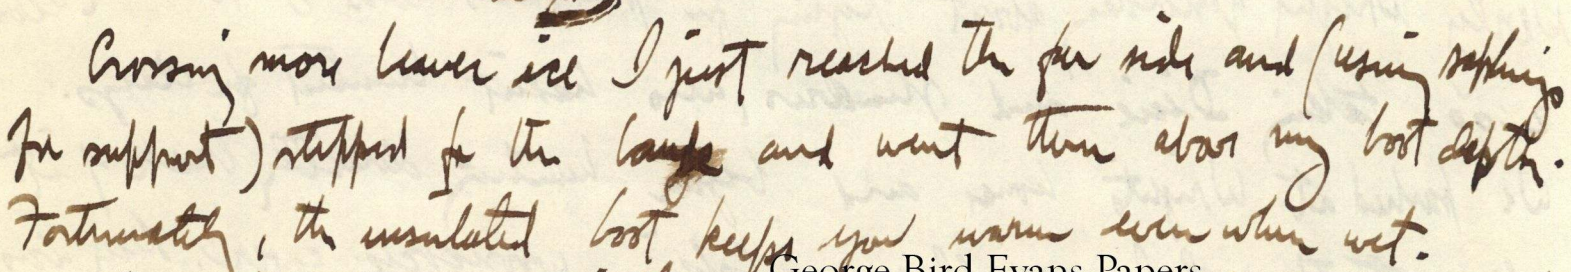 Crossing more beaver ice I just reached the far side and (using saplings
for support) stepped for the bank and went thru above my boot depth.
Fortunately, the insulated boot keeps you warm even when wet.
George Bird Evans Papers